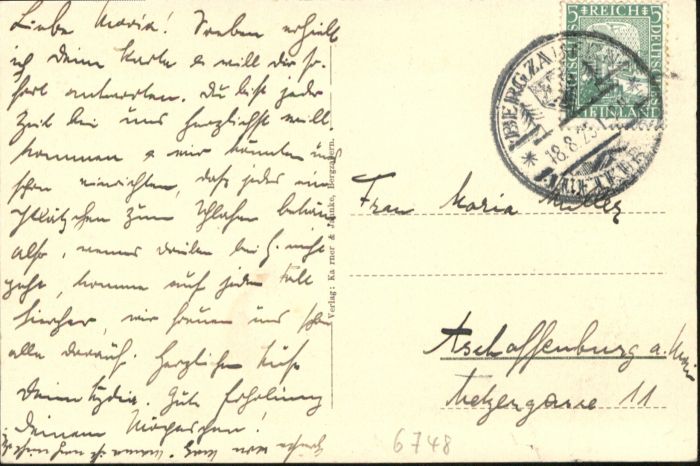 Liebe Maria! Soeben erhielt
ich Deine Karte & will Dir so-
fort antworten. Du bist jeder
Zeit bei uns herzlichst will-
kommen & wir könnten uns
schon einrichten, daß jedes ein
Plätzchen zum Schlafen bekäm
also, wenns draußen bei H. nicht
geht, komme auf jeden Fall
hierher, wir freuen uns schon
alle darauf. Herzlichen Kuß
Deine Lydia. Gute Erholung
Deinem
Verlag: Karner & Jannke, Bergzabern.
5 REICH 5
DEUTSCHES
RHEINLAND
BERGZABERN
18.8.25
Frau Maria Müller
Aschaffenburg a. Main
Metzergasse 11
6748